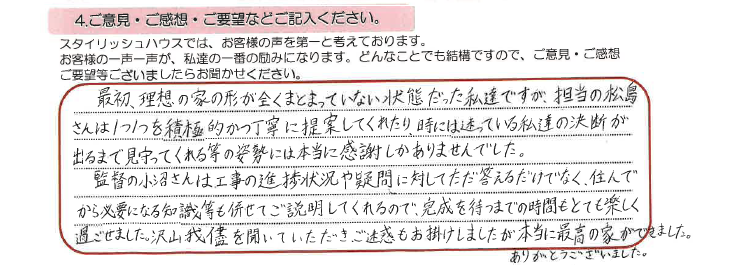 4.ご意見・ご感想・ご要望などご記入ください。
スタイリッシュハウスでは、お客様の声を第一と考えております。
お客様の一声一声が、私達の一番の励みになります。どんなことでも結構ですので、ご意見・ご感想
ご要望等ございましたらお聞かせください。
最初、理想の家の形が全くまとまっていない状態だった私達ですが、担当の松島
さんは1つ1つを積極的かつ丁寧に提案してくれたり時には迷っている私達の決断が
出るまで見守ってくれる等の姿勢には本当に感謝しかありませんでした。
監督の小沼さんは工事の進捗状況や疑問に対してただ答えるだけでなく、住んで
から必要になる知識等も併せてご説明してくれるので、完成を待つまでの時間もとても楽しく
過ごせました。沢山我儘を聞いていただき、ご迷惑もお掛けしましたが本当に最高の家ができました。
ありがとうございました。